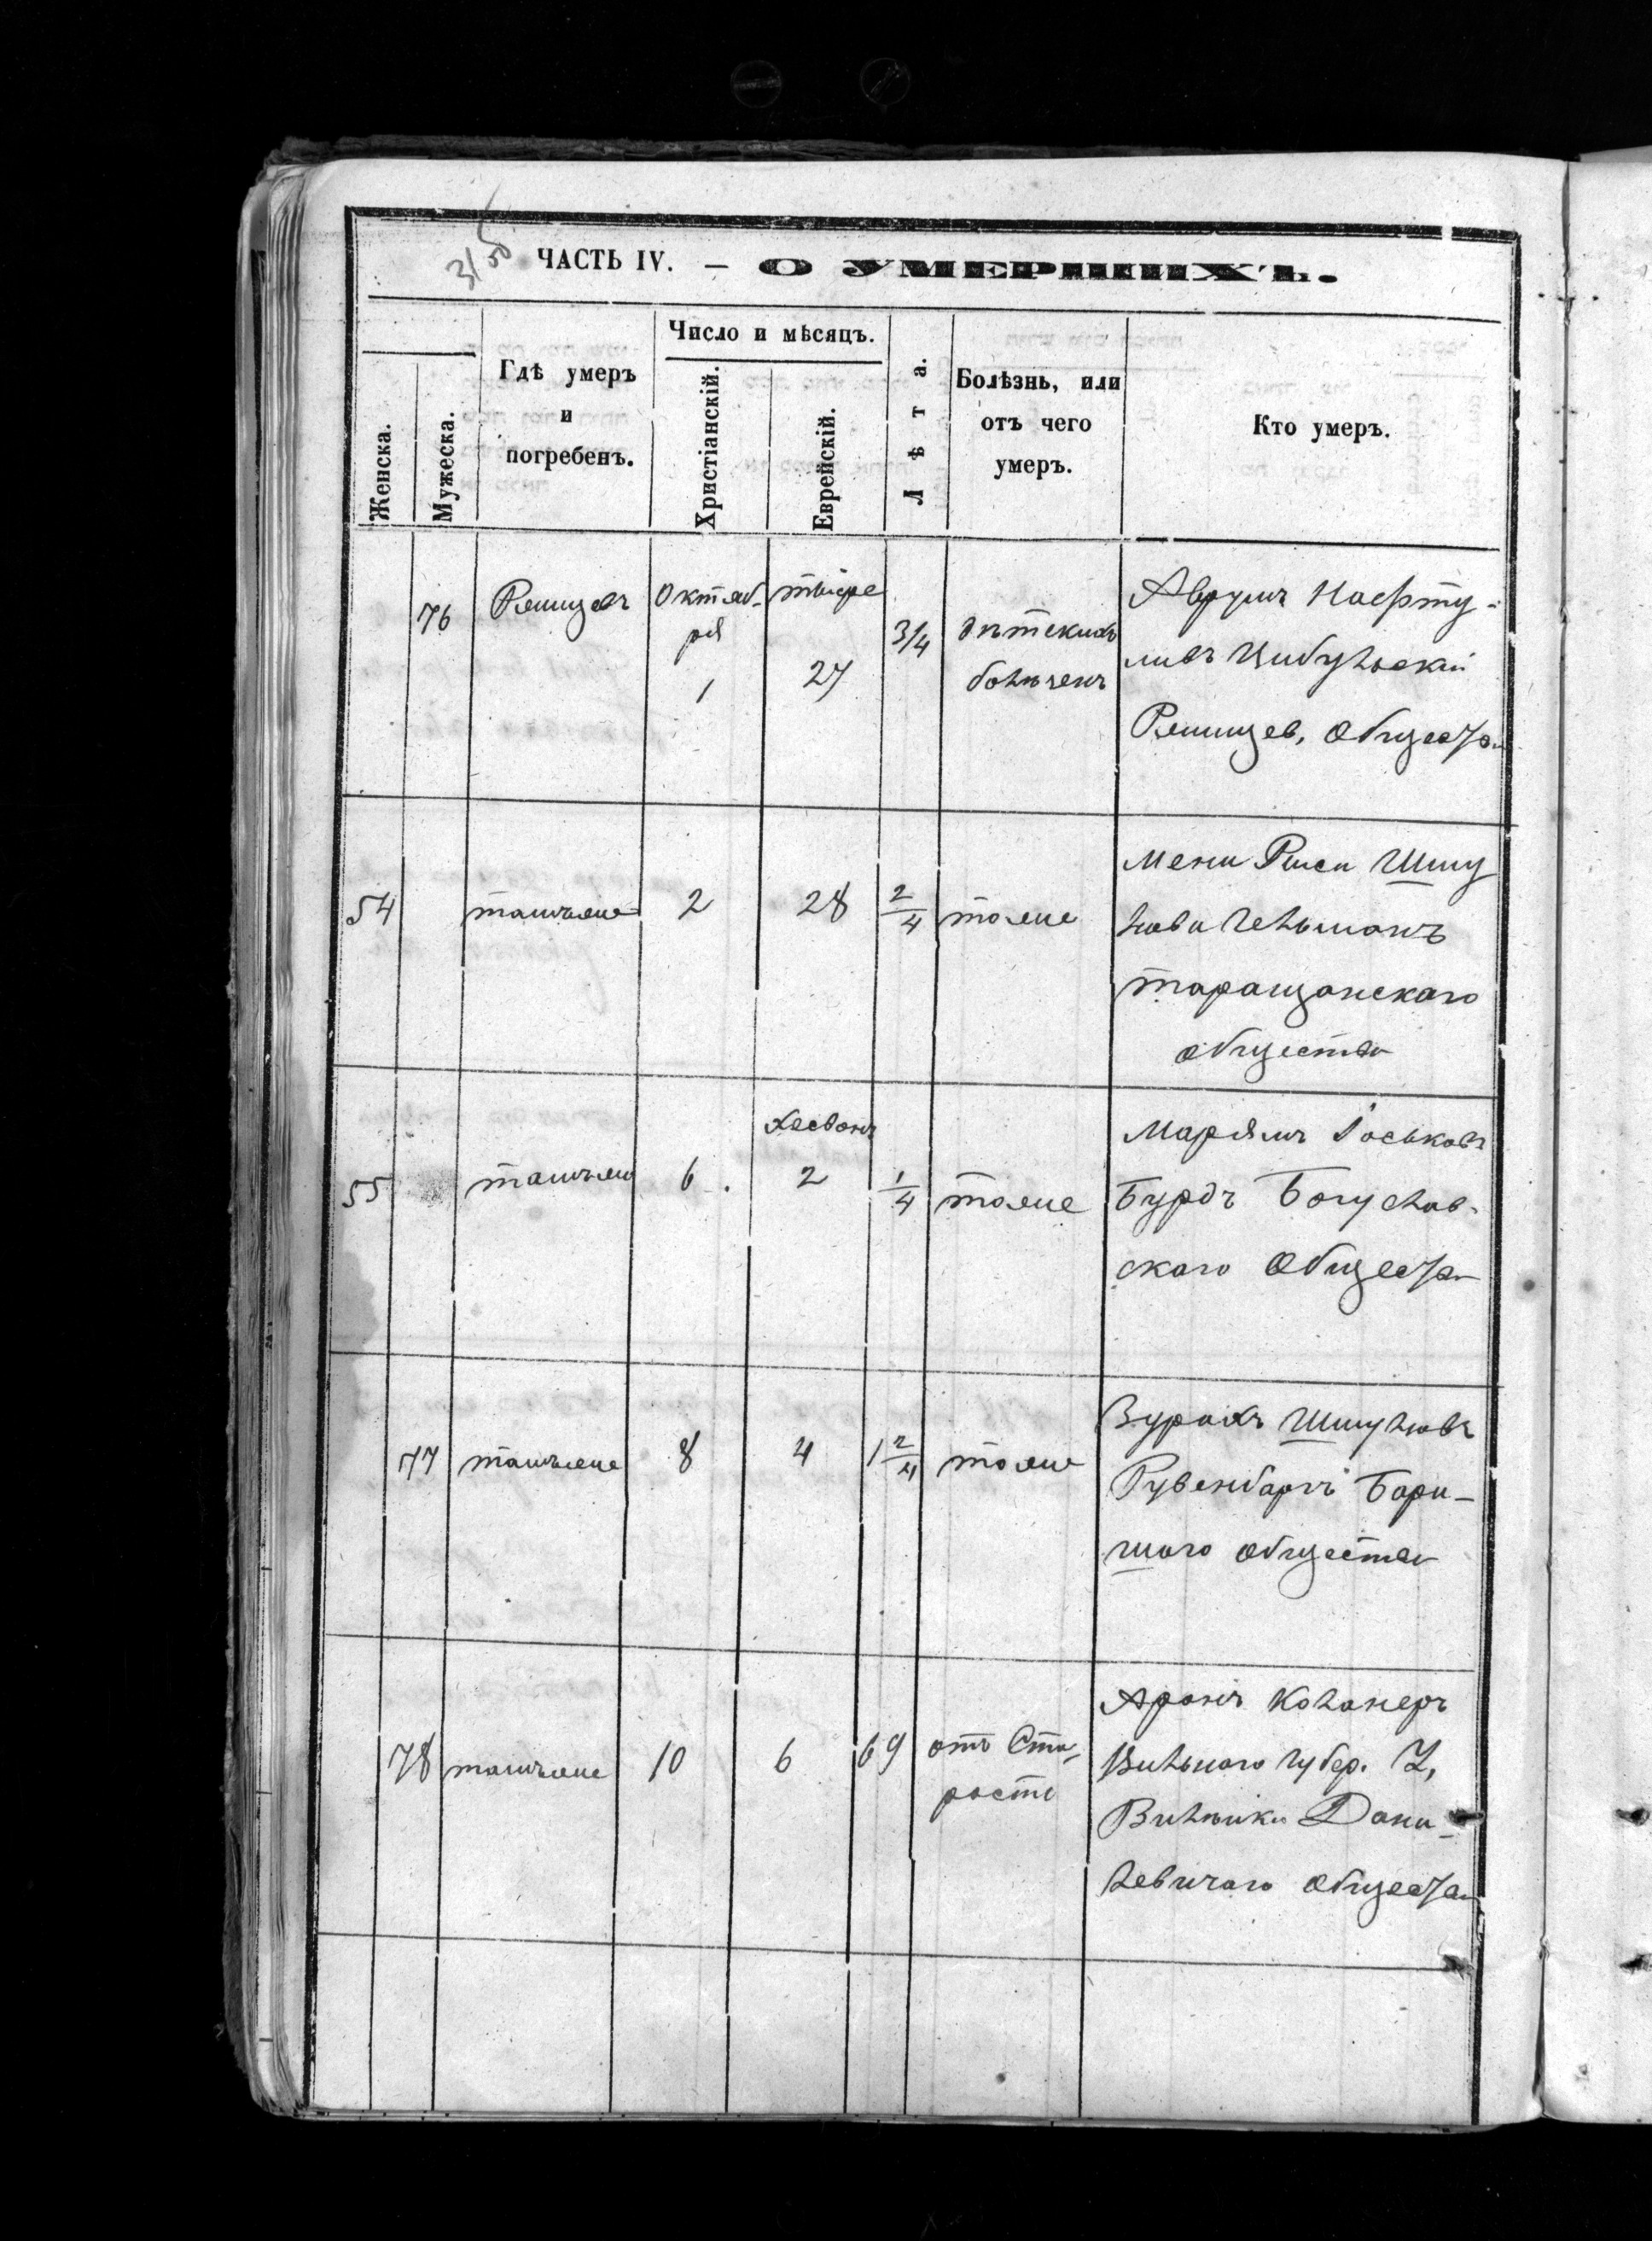 ЧАСТЬ IV. — О УМЕРШИХЪ.
Женска.
Мужеска.
Гдѣ умеръ
и
погребенъ.
Число и мѣсяцъ.
Христіанскій.
Еврейскій.
Лѣта.
Болѣзнь, или
отъ чего
умеръ.
Кто умеръ.
76
Ряшцевъ
Октяб-
ря
1
тишре
27
3/4
дѣтскихъ
болѣзень
Аврумъ Нафту-
ливъ Цибульскій
Ряшцев, Обществ.
54
тамъже
2
28
2/4
тоже
Мени Рыси Шму
лова Гельманъ
таращанскаго
общества
55
тамъже
6
Хесвонъ
2
1/4
тоже
Марямъ Іоськовъ
Бурдъ Богуслав-
скаго Обществ
77
тамъже
8
4
1 2/4
тоже
Шмуловъ
Рувенбаргъ Бари-
шаго общества
78
тамъже
10
6
69
отъ Ста-
рости
Аронъ Коланеръ
Вильнаго губер. У,
Вилѣйки Дани-
левичаго общества